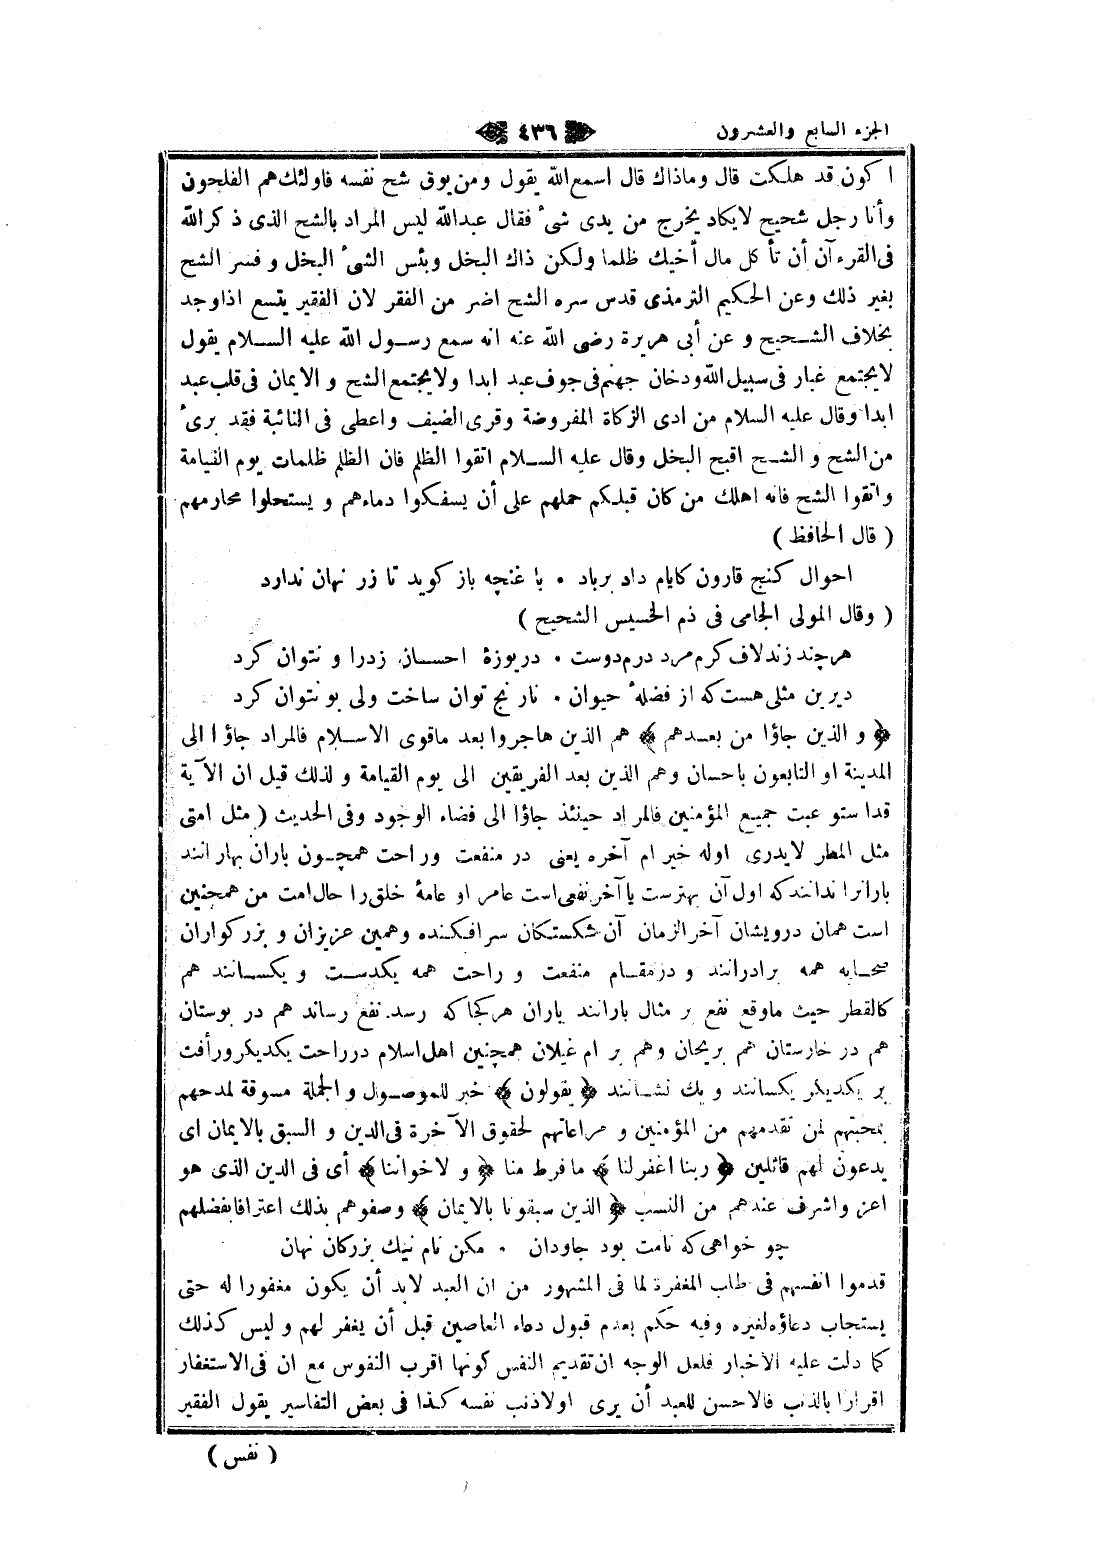 الجزء السابع والعشرون ٤٣٦
اكون قد هلكت قال وماذاك قال اسمع الله يقول ومن يوق شح نفسه فاولئك هم المفلحون
وأنا رجل شحيح لايكاد يخرج من يدى شىٔ فقال عبدالله ليس المراد بالشح الذى ذكر الله
فى القرءآن أن تأكل مال أخيك ظلما ولكن ذاك البخل وبئس الشىٔ البخل و فسر الشح
بغير ذلك وعن الحكيم الترمذى قدس سره الشح اضر من الفقر لان الفقير يتسع اذاوجد
بخلاف الشحيح و عن أبى هريرة رضى الله عنه انه سمع رسول الله عليه السلام يقول
لايجتمع غبار فى سبيل الله ودخان جهنم فى جوف عبد ابدا ولايجتمع الشح و الايمان فى قلب عبد
ابدا وقال عليه السلام من ادى الزكاة المفروضة وقرى الضيف واعطى فى النائبة فقد برىٔ
من الشح و الشح اقبح البخل وقال عليه السلام اتقوا الظلم فان الظلم ظلمات يوم القيامة
واتقوا الشح فانه اهلك من كان قبلكم حملهم على أن يسفكوا دماءهم و يستحلوا محارمهم
( قال الحافظ )
احوال كنج قارون كايام داد برباد • با غنچه باز كويد تا زر نهان ندارد
( وقال المولى الجامى فى ذم الخسيس الشحيح )
هرچند زند لاف كرم مرد درم دوست • دريوزۀ احسان زدرا و نتوان كرد
ديرين مثلى هست كه از فضلۀ حيوان • نارنج توان ساخت ولى بو نتوان كرد
﴿ و الذين جاؤا من بعدهم ﴾ هم الذين هاجروا بعد ماقوى الاسلام فالمراد جاؤا الى
المدينة او التابعون باحسان وهم الذين بعد الفريقين الى يوم القيامة و لذلك قيل ان الآية
قداستوعبت جميع المؤمنين فالمراد حينئذ جاؤا الى فضاء الوجود وفى الحديث ( مثل امتى
مثل المطر لايدرى اوله خير ام آخره يعنى در منفعت وراحت همچون باران بهارانند
بارانرا ندانند كه اول آن بهترست ياآخر نفعى است عامر او عامۀ خلق را حال امت من همچنين
است همان درويشان آخر الزمان آن شكستكان سرافكنده وهمين عزيزان و بزركواران
صحابه همه برادرانند و در مقام منفعت و راحت همه يكدست و يكسانند هم
كالقطر حيث ماوقع نفع بر مثال بارانند باران هر كجا كه رسد نفع رساند هم در بوستان
هم در خارستان هم بريحان وهم بر ام غيلان همچنين اهل اسلام در راحت يكديكر ورأفت
بر يكديكر يكسانند و يك نشانند ﴿ يقولون ﴾ خبر للموصول و الجملة مسوقة لمدحهم
بمحبتهم لمن تقدمهم من المؤمنين و مراعاتهم لحقوق الآخرة فى الدين و السبق بالايمان اى
يدعون لهم قائلين ﴿ ربنا اغفرلنا ﴾ مافرط منا ﴿ و لاخواننا ﴾ أى فى الدين الذى هو
اعز واشرف عندهم من النسب ﴿ الذين سبقونا بالايمان ﴾ وصفوهم بذلك اعترافا بفضلهم
چو خواهى كه نامت بود جاودان • مكن نام نيك بزركان نهان
قدموا انفسهم فى طلب المغفرة لما فى المشهور من ان العبد لابد أن يكون مغفورا له حتى
يستجاب دعاؤه لغيره وفيه حكم بعدم قبول دعاء العاصين قبل أن يغفر لهم و ليس كذلك
كما دلت عليه الاخبار فلعل الوجه ان تقديم النفس كونها اقرب النفوس مع ان فى الاستغفار
اقرارا بالذنب فالاحسن للعبد أن يرى اولا ذنب نفسه كذا فى بعض التفاسير يقول الفقير
( نفس )